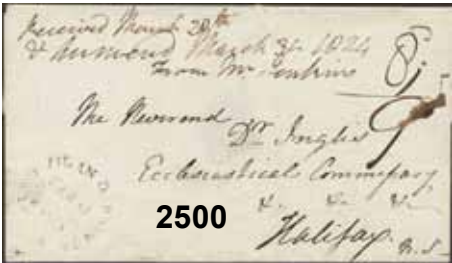 Received March 29th
& answered March 31 1824
From Mr Jenkins
8
9
The Reverend
Dr Inglis
Ecclesiastical Commissary
&c &c &c
Halifax N.S.
2500